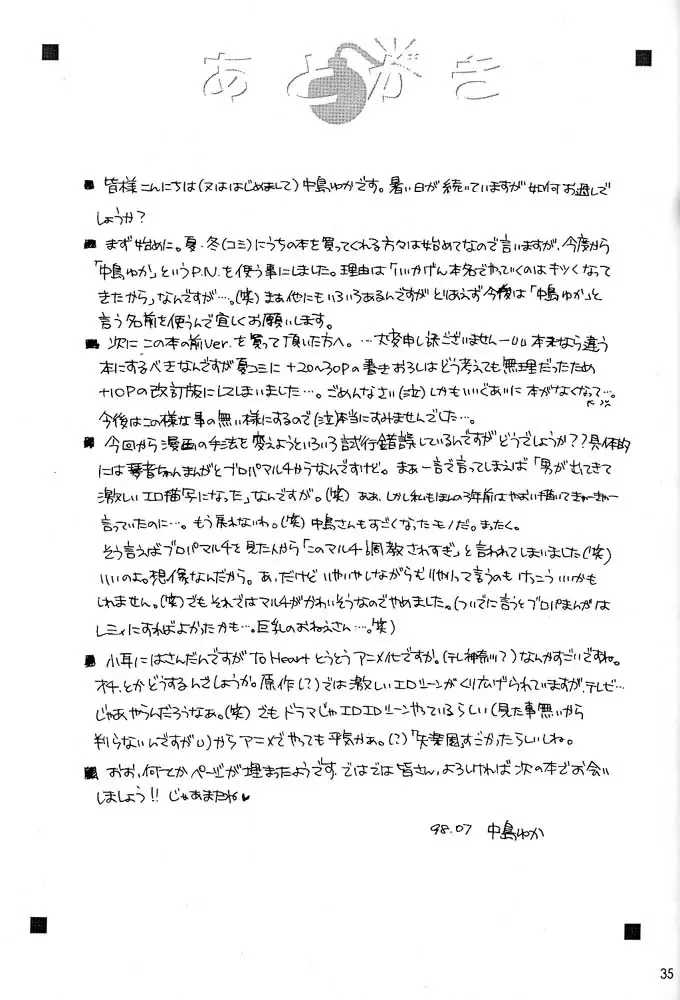 あとがき
■ 皆様こんにちは(又ははじめまして)中島ゆかです。暑い日が続いていますが如何お過しで
しょうか?
■ まず始めに。夏・冬(コミ)にうちの本を買ってくれる方々は始めてなので言いますが、今度から
「中島ゆか」というP.N.を使う事にしました。理由は「いいかげん本名でやっていくのはキツくなって
きたから」なんですが…。(笑)まぁ他にもいろいろあるんですがとりあえず今後は「中島ゆか」と
言う名前を使うんで宜しくお願いします。
■ 次にこの本の前Ver.を買って頂いた方へ。…大変申し訳ございません 本来なら違う
本にするべきなんですが夏コミに+20〜30Pの書きおろしはどう考えても無理だったため
+10Pの改訂版にしてしまいました…。ごめんなさい(泣)しかもいいぐあいに本がなくなって…。
今後はこの様な事の無い様にするので(泣)本当にすみませんでした…。
■ 今回から漫画の手法を変えようといろいろ試行錯誤しているんですがどうでしょうか??具体的
には琴音ちゃんまんがとブロパマルチからなんですけど。まぁ一言で言ってしまえば「男が出てきて
激しいエロ描写になった」なんですが。(笑)ああ、しかし私もほんの3年前はやおい描いてきゃーきゃー
言っていたのに…。もう戻れないわ。(笑)中島さんもすごくなったモノだ。まったく。
そう言えばブロパマルチを見た人から「このマルチ調教されすぎ」と言われてしまいました(笑)
いいのよ。想像なんだから。あ、だけどいやいやしながらむりやりって言うのもけっこういいかも
しれません。(笑)でもそれではマルチがかわいそうなのでやめました。(ついでに言うとブロパまんがは
レミィにすればよかったかも…。巨乳のおねえさん…。笑)
■ 小耳にはさんだんですがTo Heartとうとうアニメ化ですか。(テレビ神奈川?)なんかすごいですね。
オチ、とかどうするんでしょうか。原作(?)では激しいエロシーンがくり広げられていますが、テレビ…
じゃあやらんだろうなぁ。(笑)でもドラマじゃエロエロシーンやっているらしい(見た事無いから
判らないんですが)からアニメでやっても平気かぁ。(?)「失楽園すごかったらしいしね。
■ おお、何とかページが埋まったようです。ではでは皆さん、よろしければ次の本でお会い
しましょう!!じゃあまたね♥
98.07 中島ゆか
35